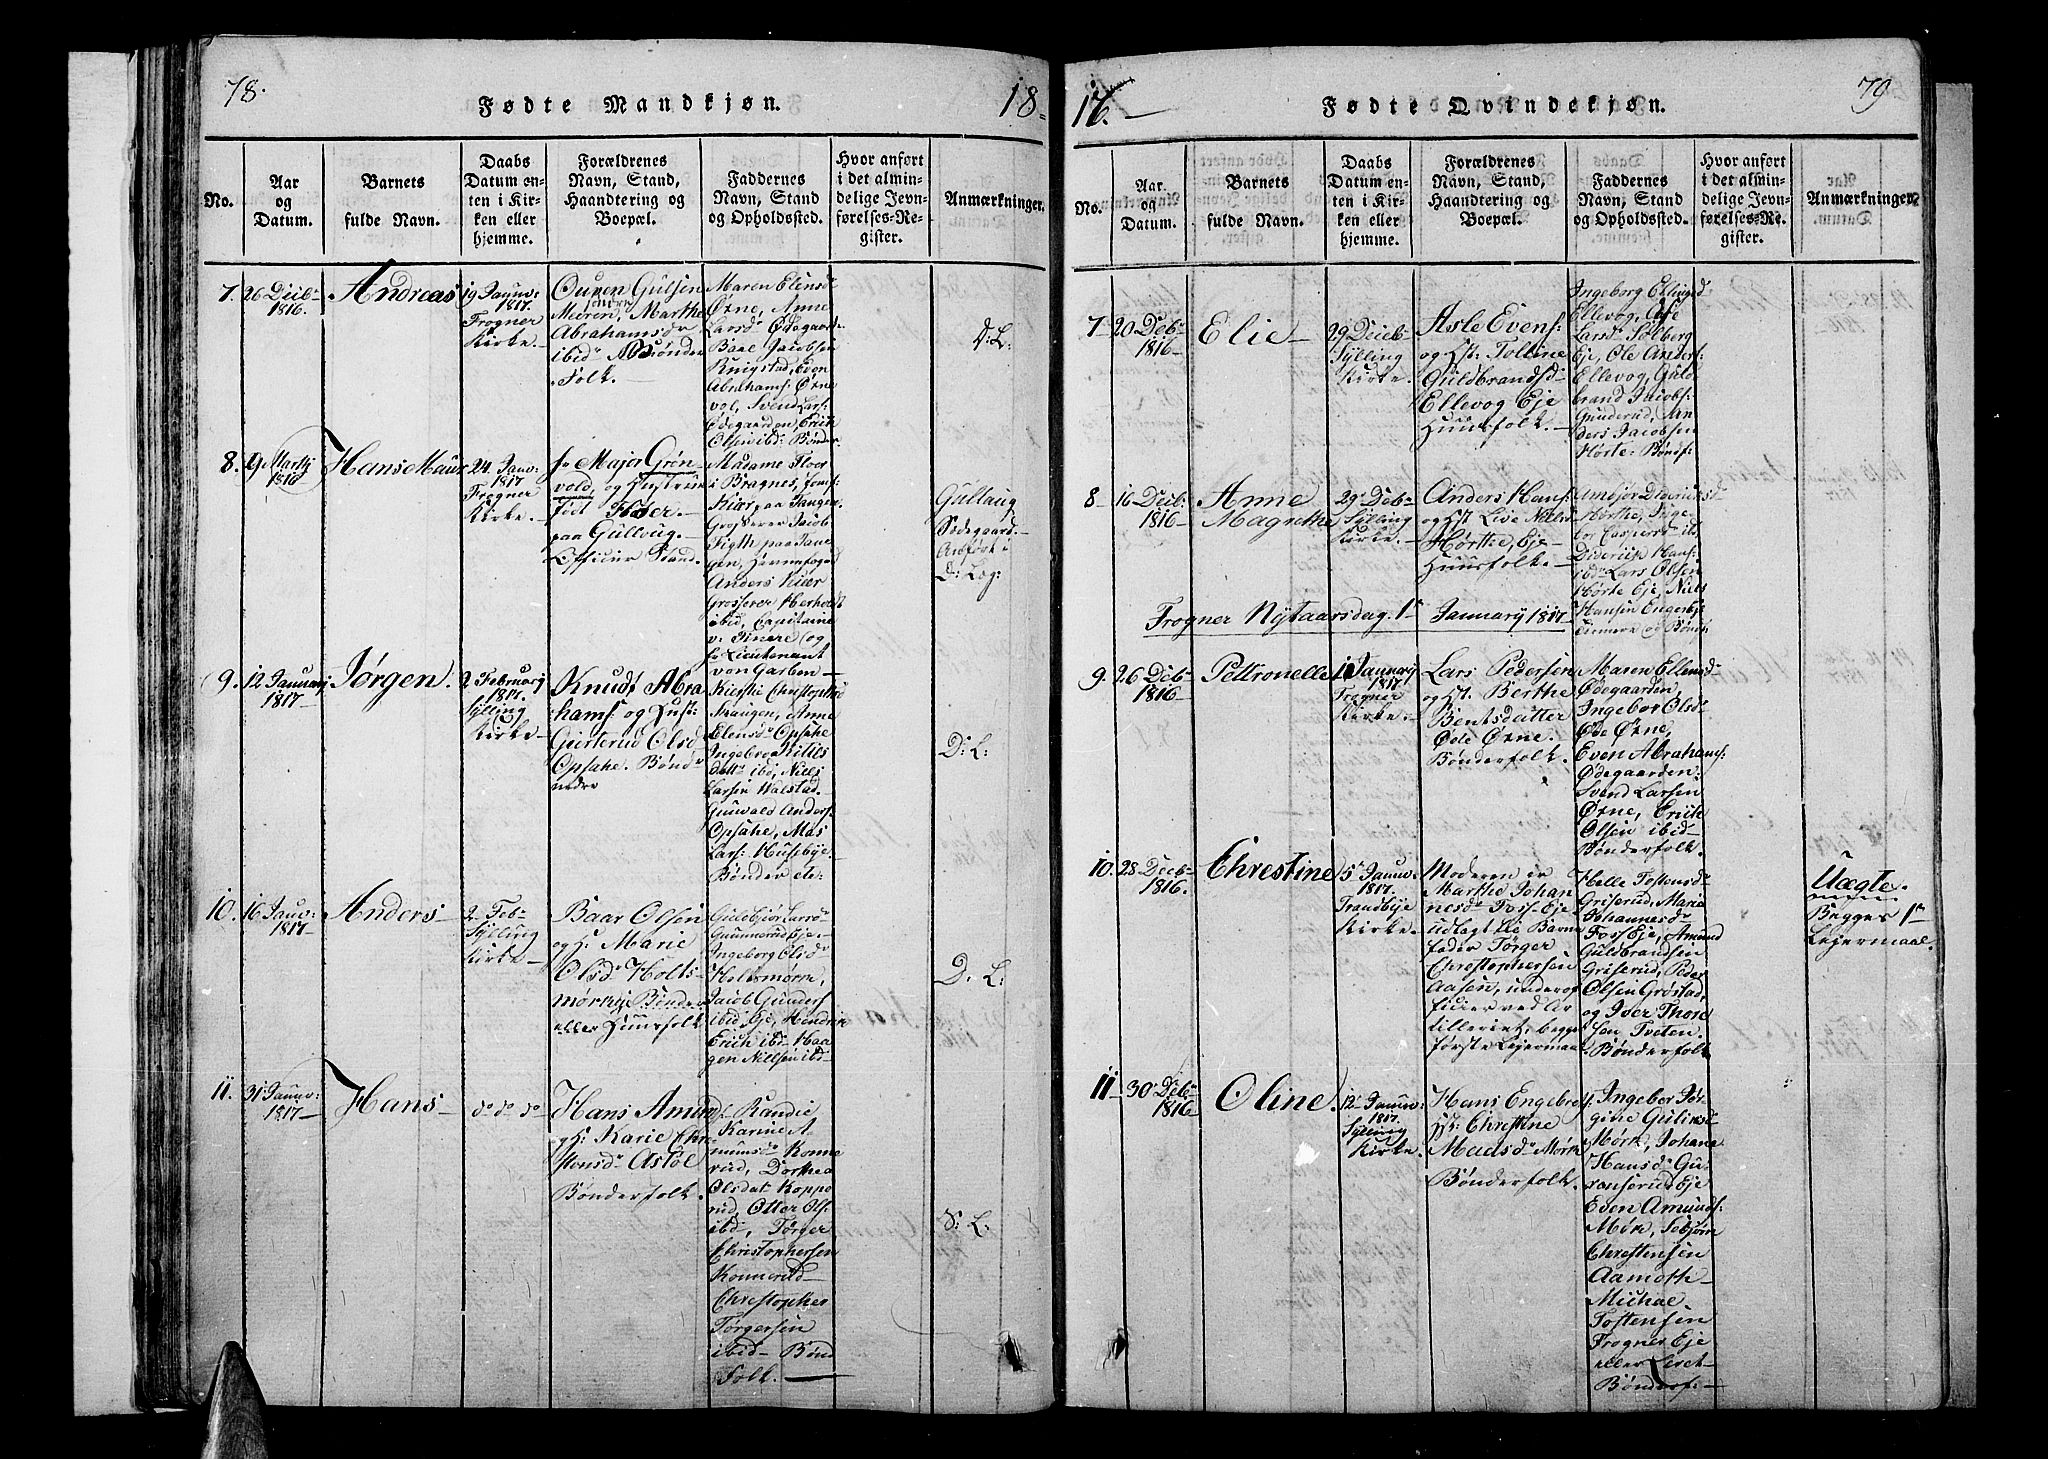 78.
Fødte Mandkjøn.
18
No.
Aar
og
Datum.
Barnets
fulde Navn.
Daabs
Datum en-
ten i Kir-
ken eller
hjemme.
Forældrenes
Navn, Stand,
Haandtering og
Boepæl.
Faddernes
Navn, Stand
og Opholdssted.
Hvor anført
i det almin-
delige Jevn-
førelses-Re-
gister.
Anmærkninger.
7.
26 Decb
1816.
Andreas
19 Januv:
1817.
Frogner
Kirke.
Ouven Gulsen
Meeren, Marthe
Abrahamsdr
ibid Bønder
Folk.
Maren Elensd
Ørne, Anne
Larsd Ødegaard
Baae Jacobsen
Knigstad, Even
Abrahams: Ørne
vol, Svend Lars:
Ødegaarden, Erich
Olsen ibd: Bønder
D: L:
8.
9 Martj
1816
Hans Maur
24 Janv:
1817
Frogner
Kirke.
Hr Major Grøn-
vold, og Hustrue
født Floer.
paa Gullaug.
Officier Stand.
Madame Floor
i Bragnes, Jomf:
Kiær, paa Tangen
Grosserer Jacob
Figth paa Tan
gen, Havnefoged
Anders Kiær
Grosserer Herholdt
ibid, Capitaine
v: Tinere og
Hr Lieutenant
von Garben
Gullaug
Sødegaard.
Anført i
D: Log:
9.
12 Januarj
1817
Jørgen.
2 Februarj
1817.
Sylling
Kirke
Knudt Abra
hams: og Hust:
Gierterud Olsd
Opsahe. Bønd
nedre
Kierstie Christophsd
Traugen, Anne
Elensd Opsahe
Ingebrea Nills
datt ibd, Niels
Larsen Walstad.
Gunvald Anders:
Opsahe, Mas
Lars: Husebye.
Bønder ele:
D: L:
10.
16 Janv:
1817
Anders
2 Feb
Sylling
Kirke
Baar Olsen
og H: Marie
Olsd Holts-
mørkeje Bønder
eller Huusfolk
Guldbjør Larsd
Gunnerud Eje.
Ingeborg Olsd
Holtsmørke,
Jacob Gunders
ibid Eje, Hendrik
Erich ibd Haa
gen Nillsen ibd
D: L:
11.
31 Janv:
1817
Hans
do do do
Hans Amund
og H: Karie Chre
stensd Asløe
Bønderfolk.
Randie
Karine A
mundsd Konne
rud, Dorthea
Olsdat Koppe
rud, Otter Ols:
ibd, Tørger
Christophersen
Konnerud
Christopher
Tørgersen
ibid Bønd
Folk.
S: L:
16.
Fødte Qvindekjøn.
79
No.
Aar
og
Datum.
Barnets
fulde Navn.
Daabs
Datum en-
ten i Kir-
ken eller
hjemme.
Forældrenes
Navn, Stand,
Haandtering og
Boepæl.
Faddernes
Navn, Stand
og Opholdssted.
Hvor anført
i det almin-
delige Jevn-
førelses-Re-
gister.
Anmærkninger.
7
20 Deb
1816
Elie
29 Decb
Sylling
Kirke.
Asle Evens:
og Hst: Tolline
Guldbrandsd
Ellevog Eje
Huusfolk.
Ingeborg Ellingsd
Ellevog, Eje
Larsd Solberg
Eje, Ole Anders:
Ellevog, Guld
brand Jacobs:
Gunderud, An
ders Jacobsen
Hørte: Bønsf:
8
16 Decb
1816
Anne
Magrethe
29 Deb
Sylling
Kirke.
Anders Hans:
og Hst Live Nielsd
Hørthe, Eje
Huusfolk.
Ambjør Dideriksd
Hørthe, Inge
bor Caspersd ib
Diderich Hans:
ibd Lars Olsen
Hørte Eje, Niels
Hansen Enger Eje
og Bønd:
Frogner Nytaarsdag 1 Januarij 1817
9
26 Deb
1816
Pettronelle
1 Januarj
1817
Frogner
Kirke.
Lars Pedersen
og H: Berthe
Bentsdatter
Øde Ørne.
Bønderfolk.
Maren Ellensd
Ødegaarden
Ingebor Olsd
Øde Ørne,
Even Abrahams:
Ødegaarden:
Svend Larsen
Ørne, Erich
Olsen ibid
Bønderfolk.
10.
28 Decb
1816.
Chrestine
5 Januv:
1817.
Trandbye
Kirke.
Moderen er
Marthe Johan
nesd Foss-Eje
udlagt tie Barne
fader Tørger
Christophersen
Aasen, underof
ficier ved Ar
tilleriet, begges
første Lejermaal
Helle Tostensd
Griserud, Marie
Johannesd
Foss Eje, Amund
Guldbrandsen
Griserud, Peder
Olsen Grøstad,
og Iver Thore
sen Tveten
Bønderfolk
Uægte.
Begges 1
Lejermaal.
11
30 Deb
1816
Oline.
12 Januv:
1817.
Sylling
Kirke.
Hans Engebre
H: Chrestine
Madsd Mørk
Bønderfolk.
Ingebor Jør
gine Gulixsd
Mørk, Johane
Hansd Gu
ranserud Eje
Even Amunds:
Mørk, Sebjørn
Chrestensen
Aamoth
Michal
Tostensen
Frogner Eje
eller Leret
Bønderf: